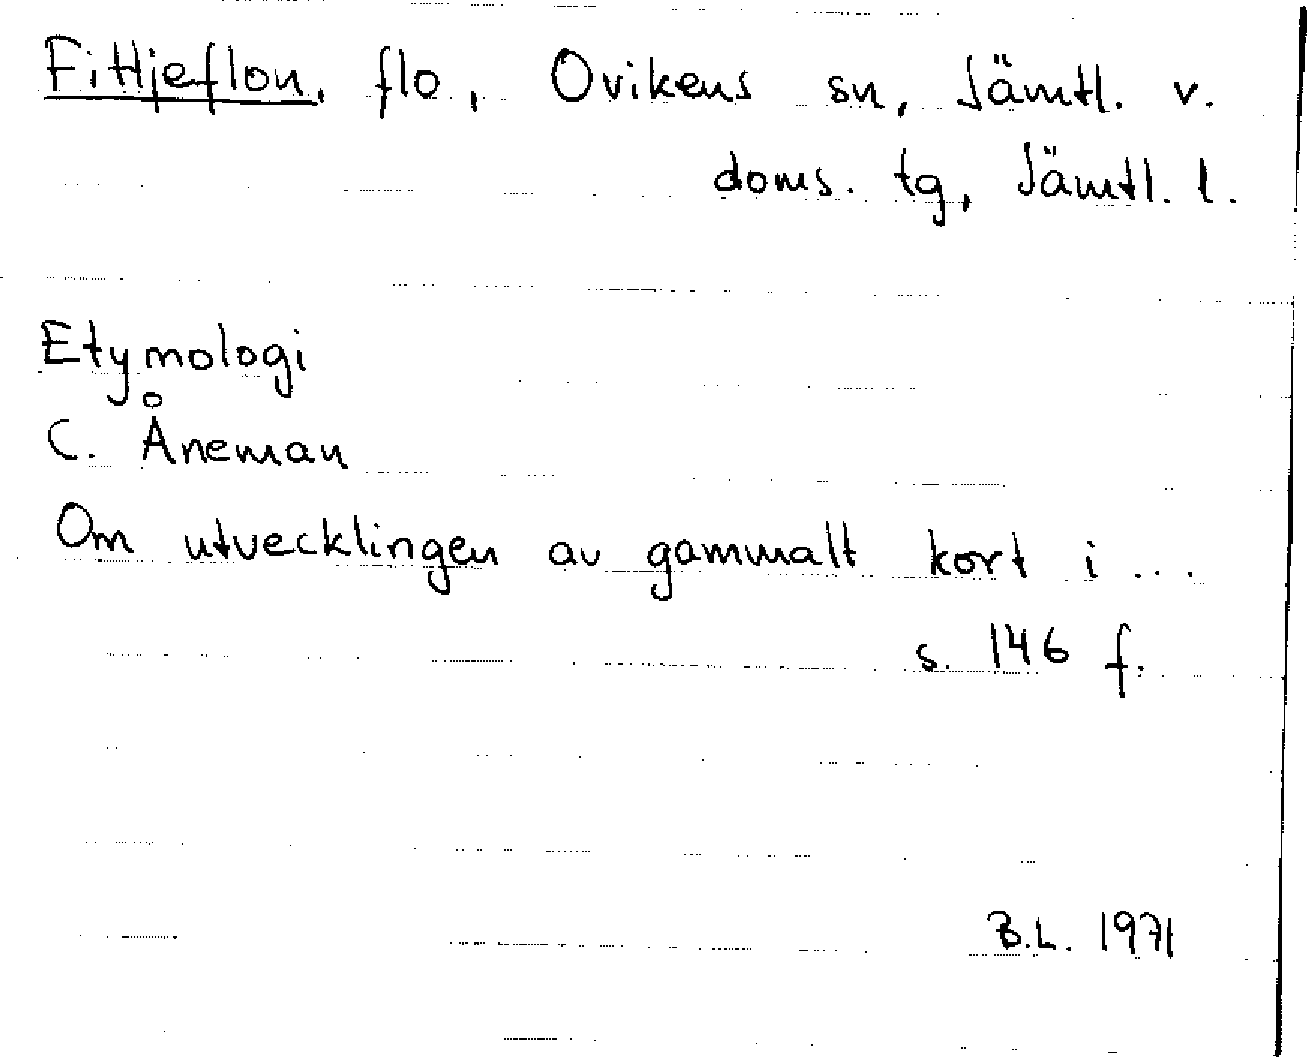 Fittjeflon, flo, Ovikens sn, Jämtl. v.
doms. tg, Jämtl. l.
Etymologi
C. Åneman
Om utvecklingen av gammalt kort i ...
s. 146 f.
B.L. 1971